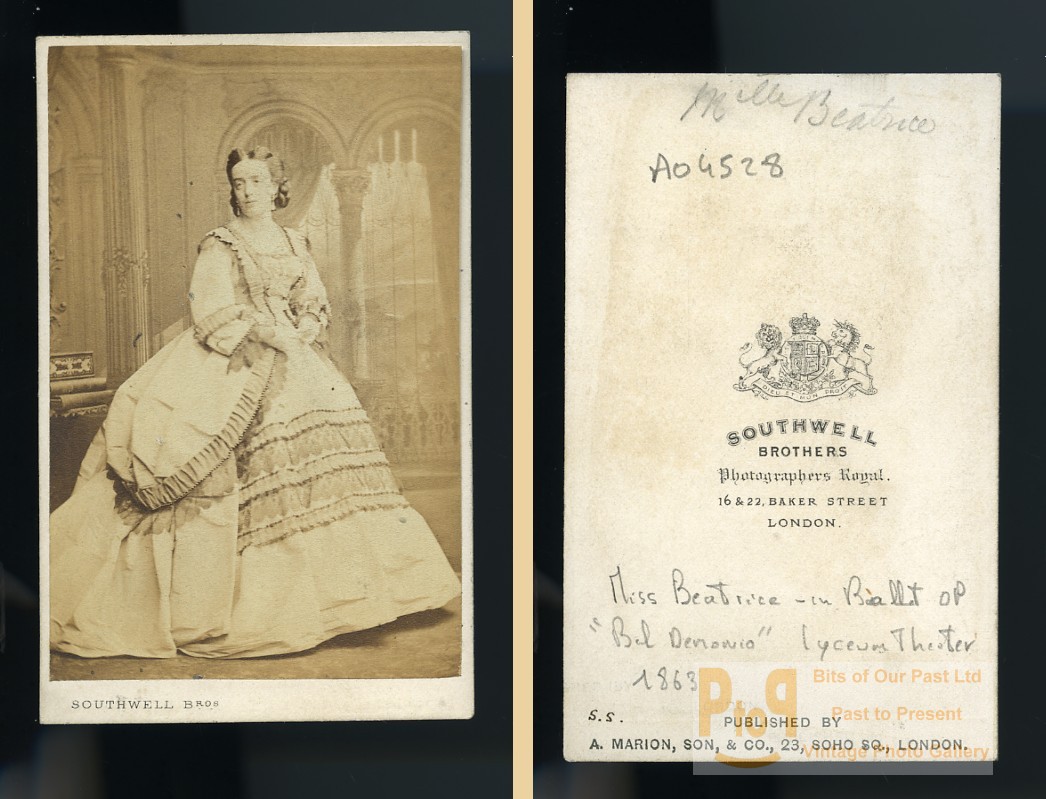 SOUTHWELL BROS
Mlle Beatrice
A04528
DIEU ET MON DROIT
SOUTHWELL
BROTHERS
Photographers Royal.
16 & 22, BAKER STREET
LONDON.
Miss Beatrice - in Ballt op
"Bel Demonio" Lyceum Theater
1863
S.S.
PUBLISHED BY
A. MARION, SON, & CO., 23, SOHO SQ., LONDON.
PtoP
Bits of Our Past Ltd
Past to Present
Vintage Photo Gallery